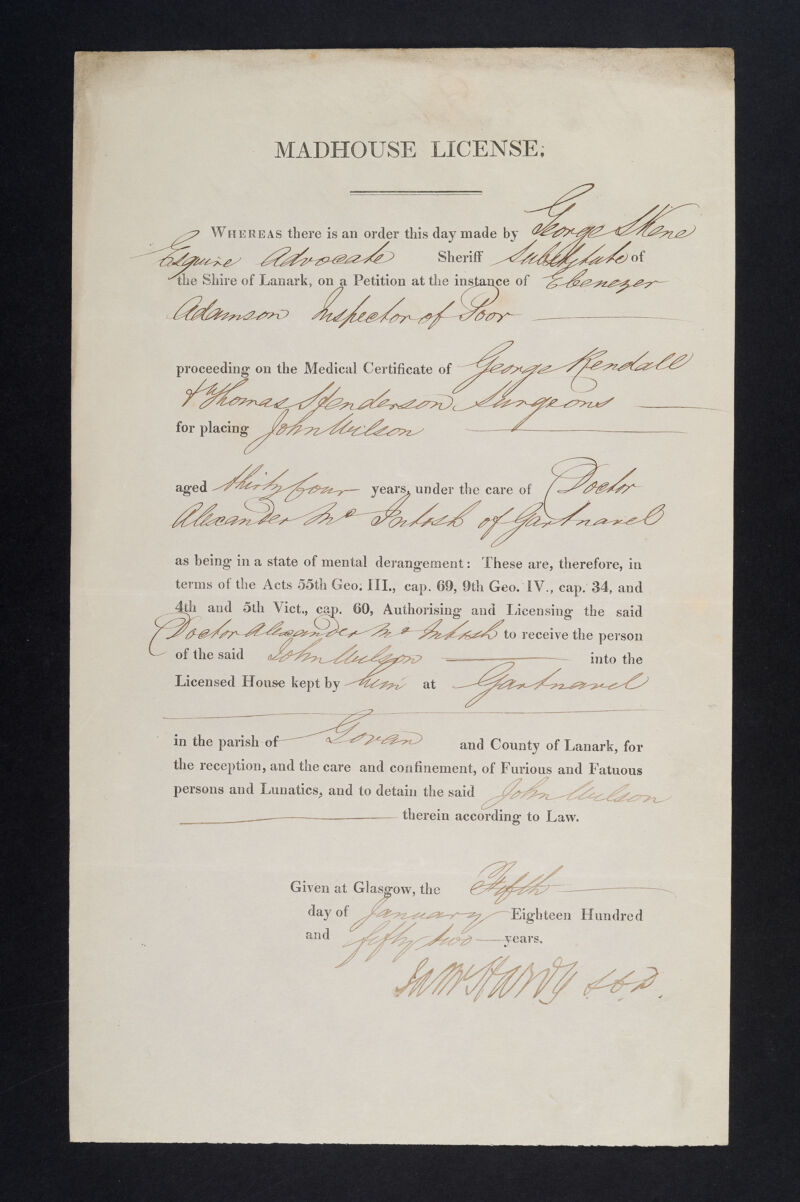 MADHOUSE LICENSE.
WHEREAS there is an order this day made by George Skene
Esquire Advocate Sheriff Substitute of
the Shire of Lanark, on a Petition at the instance of Ebenezer
Adamson Inspector of Poor
proceeding on the Medical Certificate of George Kendall
& Thomas Henderson Surgeons
for placing John Wilson
aged thirty four years, under the care of Doctor
Alexander Mc Intosh of Gartnavel
as being in a state of mental derangement: These are, therefore, in
terms of the Acts 55th Geo. III., cap. 69, 9th Geo. IV., cap. 34, and
4th and 5th Vict., cap. 60, Authorising and Licensing the said
Doctor Alexander Mc Intosh to receive the person
of the said John Wilson into the
Licensed House kept by him at Gartnavel
in the parish of Govan and County of Lanark, for
the reception, and the care and confinement, of Furious and Fatuous
persons and Lunatics, and to detain the said John Wilson
therein according to Law.
Given at Glasgow, the Fifth
day of January Eighteen Hundred
and fifty two years.